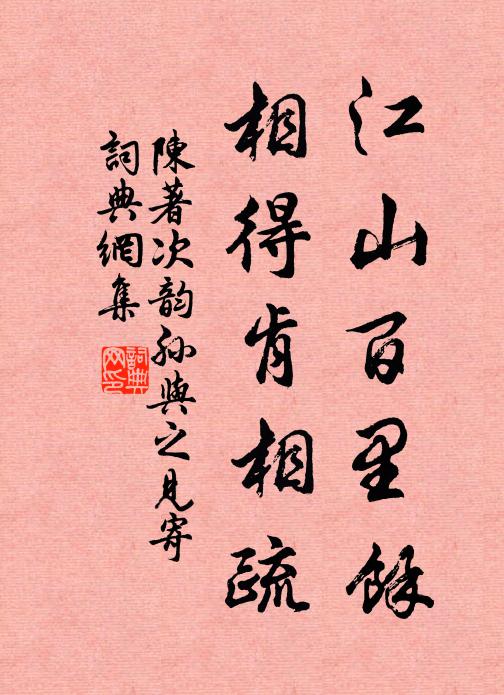 江山百里餘
相得肯相疏
陳著次韵孫與之見寄
詞典網集
詞典
网印